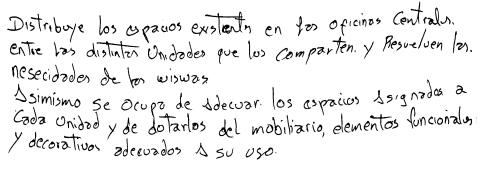 Distribuye los espacios existentn en las oficinas Centrales.
entre las distintas Unidades que los comparten. y Resuelven las.
nesecidades de las wiswas
Asimismo se ocupa de Adecuar. los espacios Asignados a
Cada Unidad y de dotarlos del mobiliario, elementos funcionales
y decorativos adecuados A su uso.